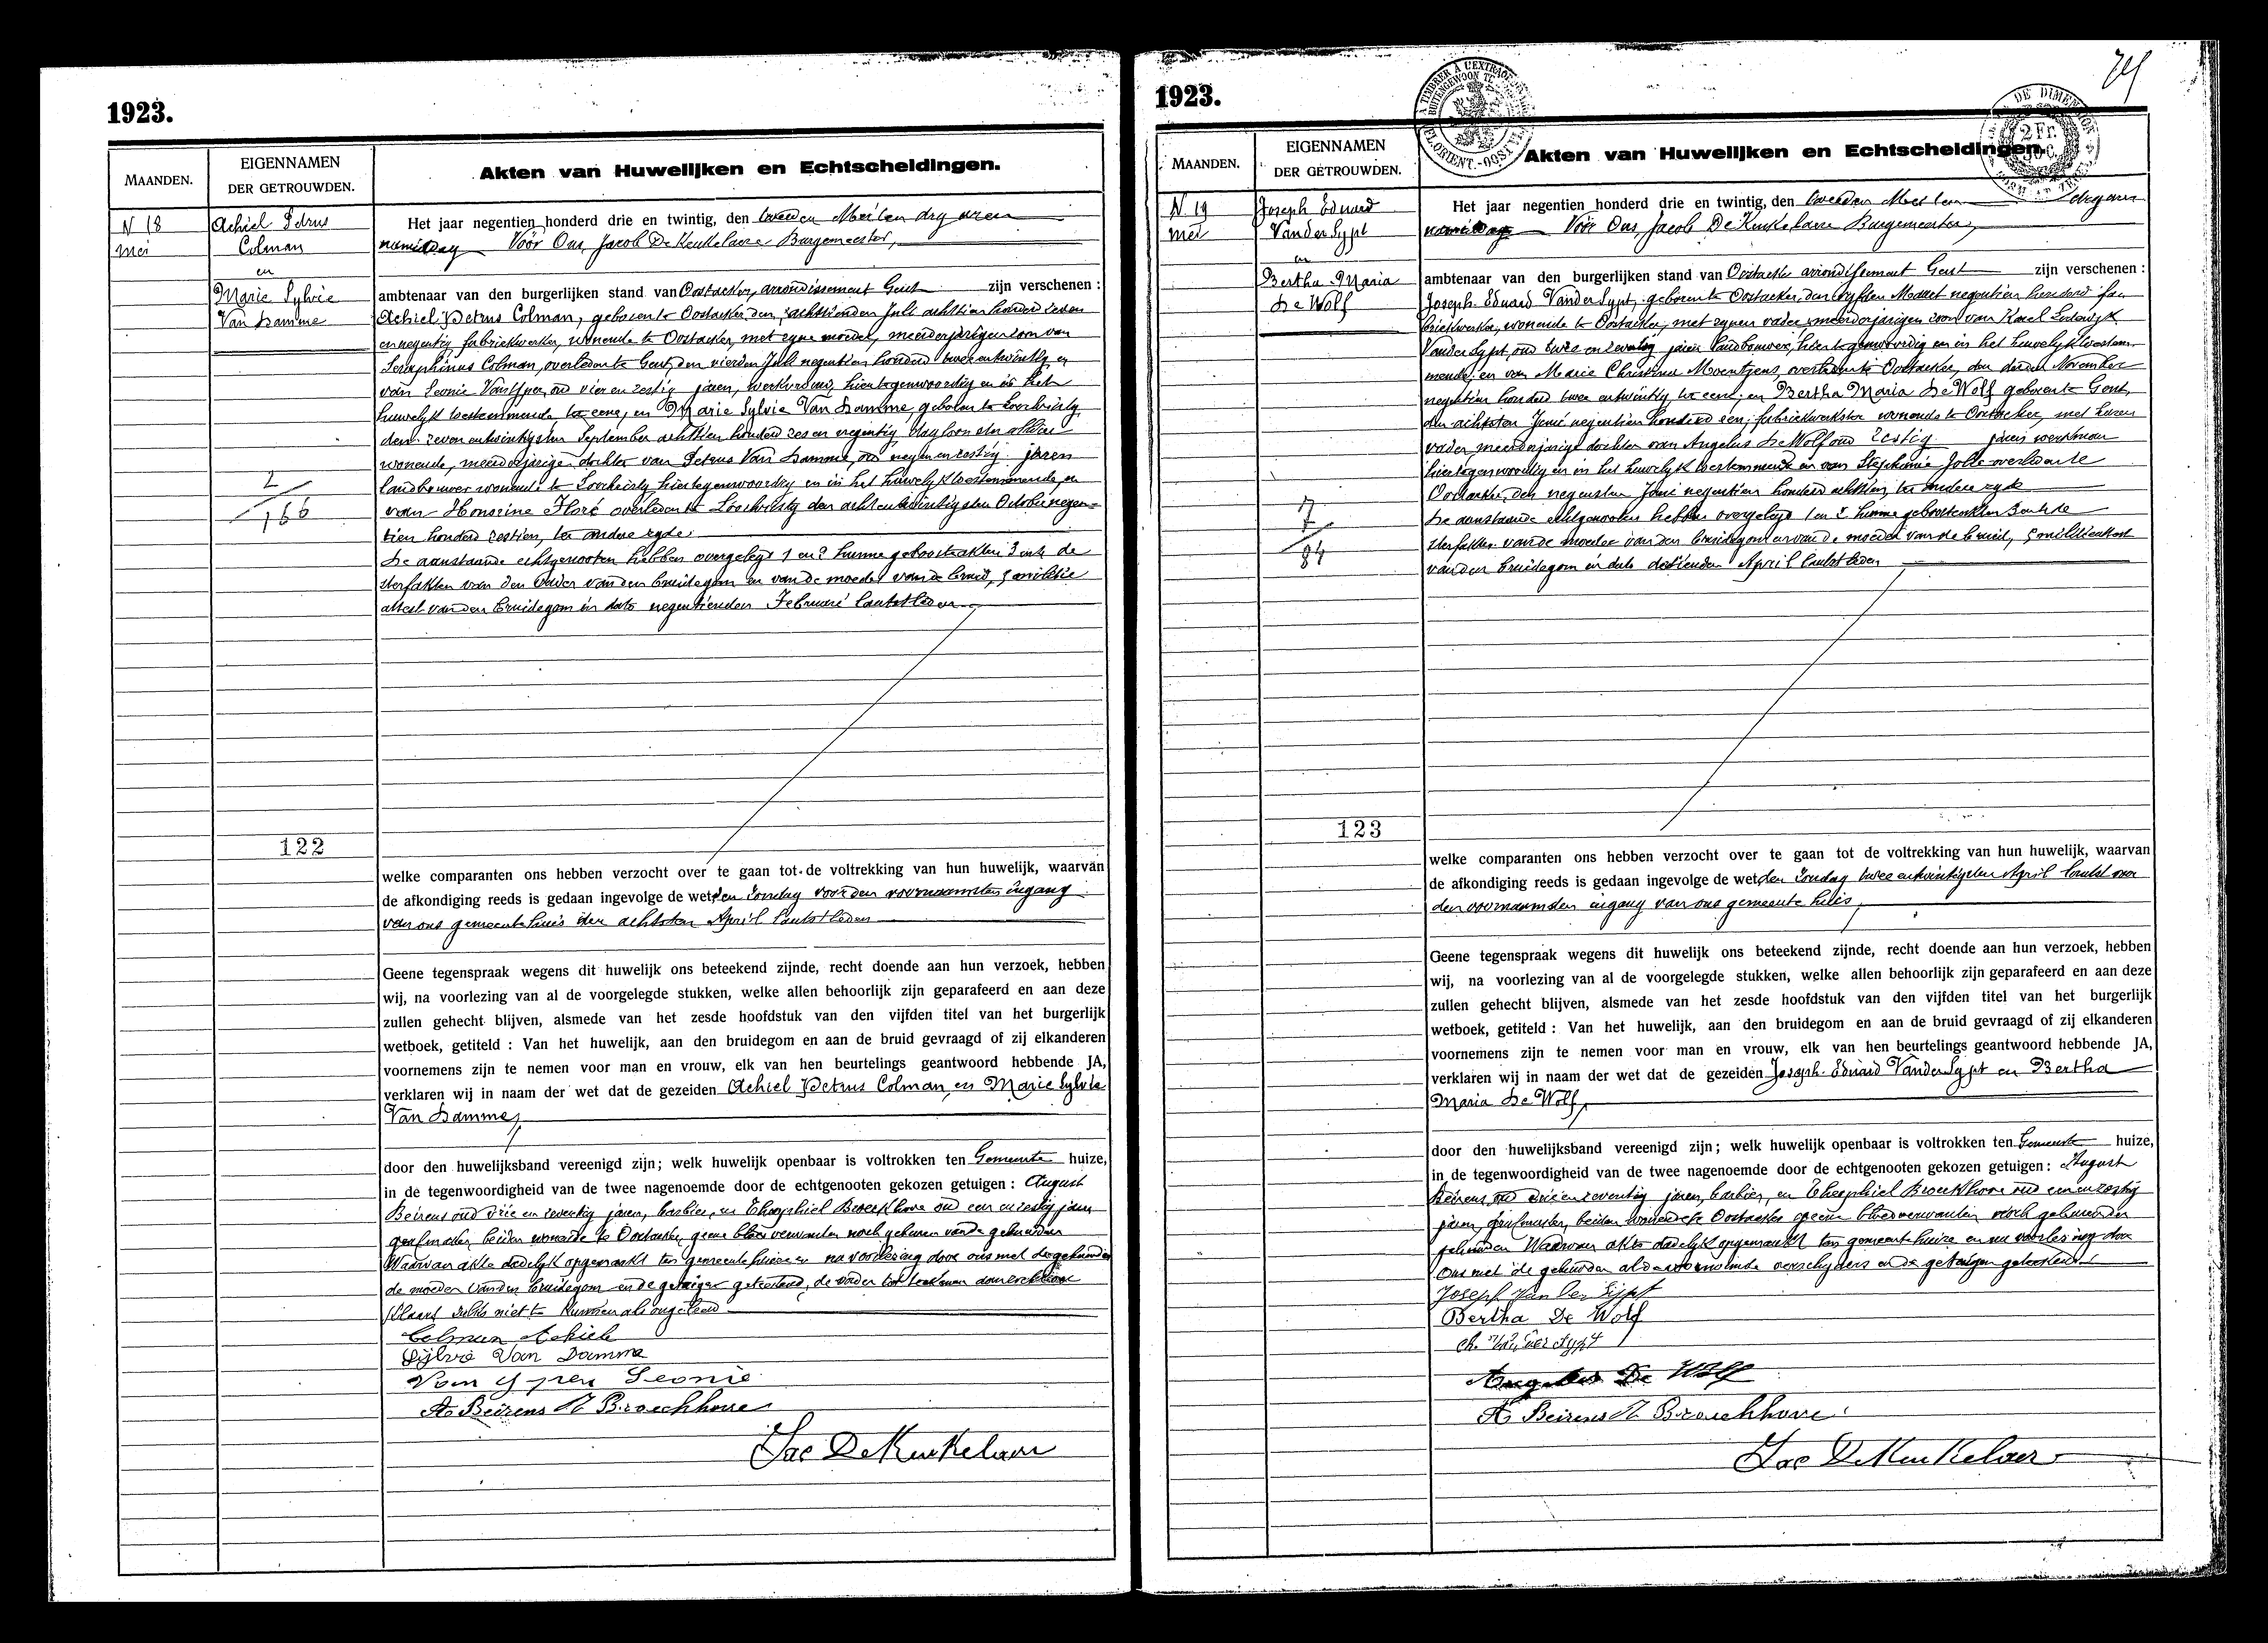 1923.
MAANDEN.
EIGENNAMEN
DER GETROUWDEN.
Akten van Huwelijken en Echtscheidingen.
N 18
Mei
Achiel Petrus
Colman
en
Marie Sylvie
Van Damme
2
166
122
Het jaar negentien honderd drie en twintig, den tweeden Mei ten dry uren
namiddag Vóór Ons, Jacob De Keukelaere Burgemeester,
ambtenaar van den burgerlijken stand van Oostacker, arrondissement Gent zijn verschenen :
Achiel Petrus Colman, geboren te Oostacker, den achttienden Juli achttien honderd zeven
en negentig fabriekwerker, wonende te Oostacker, met zyne moeder, meerderjarigen zoon van
Seraphinus Colman, overleden te Gent, den vierden Juli negentien honderd twee en twintig en
van Leonie Van Yper, oud vier en zestig jaren, werkvrouw, hiertegenwoordig en in het
huwelyk toestemmende ter eene, en Marie Sylvie Van Damme, geboren te Loochristy,
den zeven entwintigsten September achttien honderd zes en negentig, dagloonster aldaar
wonende, meerderjarige dochter van Petrus Van Damme, oud negen en zestig jaren
landbouwer wonende te Loochristy hiertegenwoordig en in het huwelyk toestemmende, en
van Honorine Floré overleden te Loochristy den achtentwintigsten October negen-
tien honderd zestien, ter andere zyde.
De aanstaande echtgenooten hebben overgelegd 1 en 2 hunne geboorteakten 3 en 4 de
sterfakten van den vader van den bruidegom en van de moeder van de bruid, 5 militie
attest van den bruidegom in dato negentienden Februari laatstleden
welke comparanten ons hebben verzocht over te gaan tot de voltrekking van hun huwelijk, waarvan
de afkondiging reeds is gedaan ingevolge de wet, den Zondag voor den voornaamsten ingang
van ons gemeentehuis den achtsten April laatstleden
Geene tegenspraak wegens dit huwelijk ons beteekend zijnde, recht doende aan hun verzoek, hebben
wij, na voorlezing van al de voorgelegde stukken, welke allen behoorlijk zijn geparafeerd en aan deze
zullen gehecht blijven, alsmede van het zesde hoofdstuk van den vijfden titel van het burgerlijk
wetboek, getiteld : Van het huwelijk, aan den bruidegom en aan de bruid gevraagd of zij elkanderen
voornemens zijn te nemen voor man en vrouw, elk van hen beurtelings geantwoord hebbende JA,
verklaren wij in naam der wet dat de gezeiden Achiel Petrus Colman en Marie Sylvie
Van Damme,
door den huwelijksband vereenigd zijn; welk huwelijk openbaar is voltrokken ten Gemeente huize,
in de tegenwoordigheid van de twee nagenoemde door de echtgenooten gekozen getuigen : August
Beirens oud drie en zeventig jaren, barbier, en Theophiel Broeckhove oud een en zestig jaren
grafmaker, beiden wonende te Oostacker, geene bloedverwanten noch geburen van de gehuwden
Waarvan akte dadelyk opgemaakt ten gemeentehuize en na voorlezing door ons met de gehuwden
de moeder van den bruidegom en de getuigen geteekend, de vader der
verklaart zulks niet te kunnen als ongeleerd
Colman Achiel
Sylvie Van Damme
Van Yper Leonie
A. Beirens T. Broeckhove
Jac De Keukelaere
1923.
MAANDEN.
EIGENNAMEN
DER GETROUWDEN.
Akten van Huwelijken en Echtscheidingen.
N 19
Mei
Joseph Eduard
Vander Sypt
en
Bertha Maria
De Wolf
7
7
84
123
Het jaar negentien honderd drie en twintig, den tweeden Mei ten dry uren
namiddag Vóór Ons, Jacob De Keukelaere Burgemeester,
ambtenaar van den burgerlijken stand van Oostacker arrondissement Gent zijn verschenen :
Joseph Eduard Vander Sypt, geboren te Oostacker, den vyfden Maart negentien honderd
fabriekwerker, wonende te Oostacker, met zynen vader, meerderjarigen zoon van Karel Lodewyk
Vander Sypt, oud twee en zeventig jaren landbouwer, hier tegenwoordig en in het huwelyk toestem-
mende, en van Marie Christine Moentjens, overleden te Oostacker, den derden November
negentien honderd twee entwintig ter eene; en Bertha Maria De Wolf geboren te Gent,
den achtsten Juni negentien honderd een, fabriekwerkster wonende te Oostacker, met haren
vader, meerderjarige dochter van Angelus De Wolf oud zestig jaren werkman
hiertegenwoordig en in het huwelyk toestemmende en van Stephanie Jolie overleden te
Oostacker, den negensten Juni negentien honderd achttien, ter andere zyde
De aanstaande echtgenooten hebben overgelegd 1 en 2 hunne geboorteakten 3 en 4 de
sterfakten van de moeder van den bruidegom en van de moeder van de bruid, 5 militieattest
van den bruidegom in dato dertienden April laatstleden
welke comparanten ons hebben verzocht over te gaan tot de voltrekking van hun huwelijk, waarvan
de afkondiging reeds is gedaan ingevolge de wet, den Zondag twee entwintigsten April laatst voor
den voornaamsten ingang van ons gemeente huis,
Geene tegenspraak wegens dit huwelijk ons beteekend zijnde, recht doende aan hun verzoek, hebben
wij, na voorlezing van al de voorgelegde stukken, welke allen behoorlijk zijn geparafeerd en aan deze
zullen gehecht blijven, alsmede van het zesde hoofdstuk van den vijfden titel van het burgerlijk
wetboek, getiteld : Van het huwelijk, aan den bruidegom en aan de bruid gevraagd of zij elkanderen
voornemens zijn te nemen voor man en vrouw, elk van hen beurtelings geantwoord hebbende JA,
verklaren wij in naam der wet dat de gezeiden Joseph Eduard Vander Sypt en Bertha
Maria De Wolf,
door den huwelijksband vereenigd zijn; welk huwelijk openbaar is voltrokken ten Gemeente huize,
in de tegenwoordigheid van de twee nagenoemde door de echtgenooten gekozen getuigen : August
Beirens, oud drie en zeventig jaren, barbier, en Theophiel Broeckhove oud een en zestig
jaren, grafmaker, beiden wonende te Oostacker geene bloedverwanten noch geburen der
gehuwden Waarvan akte dadelyk opgemaakt ten gemeentehuize en na voorlezing door
ons met de gehuwden verschyners en de getuigen geteekend
Joseph Van der Sypt
Bertha De Wolf
Ch. Vander Sypt
Angelus De Wolf
A. Beirens T. Broeckhove
Jac De Keukelaere